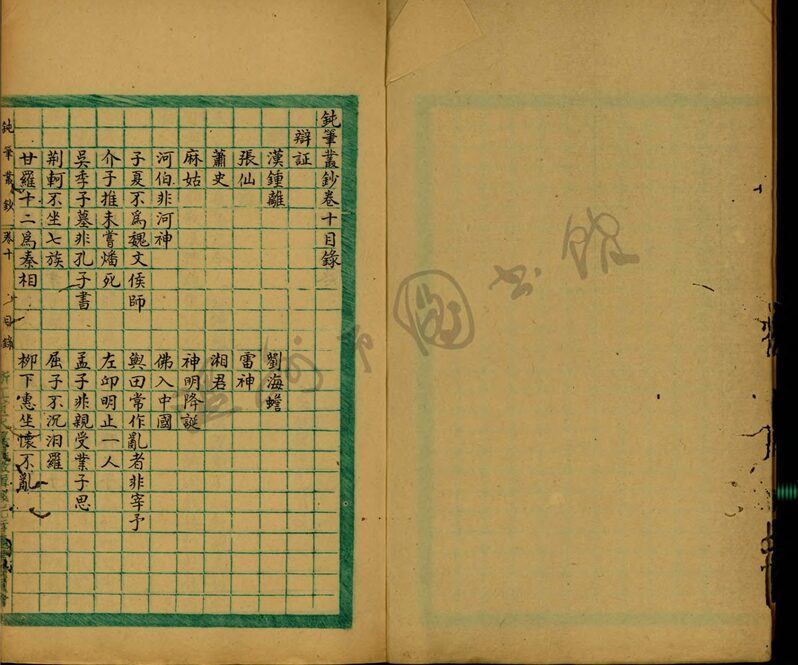 鈍筆叢鈔卷十目錄
辯証
漢鍾離 劉海蟾
張仙 雷神
蕭史 湘君
麻姑 神明降誕
河伯非河神 佛入中國
子夏不爲魏文侯師 與田常作亂者非宰予
介子推未嘗燔死 左卬明止一人
吳季子墓非孔子書 孟子非親受業子思
荆軻不坐七族 屈子不沉汨羅
甘羅十二爲秦相 柳下惠坐懷不亂
鈍筆叢鈔 卷十 目錄